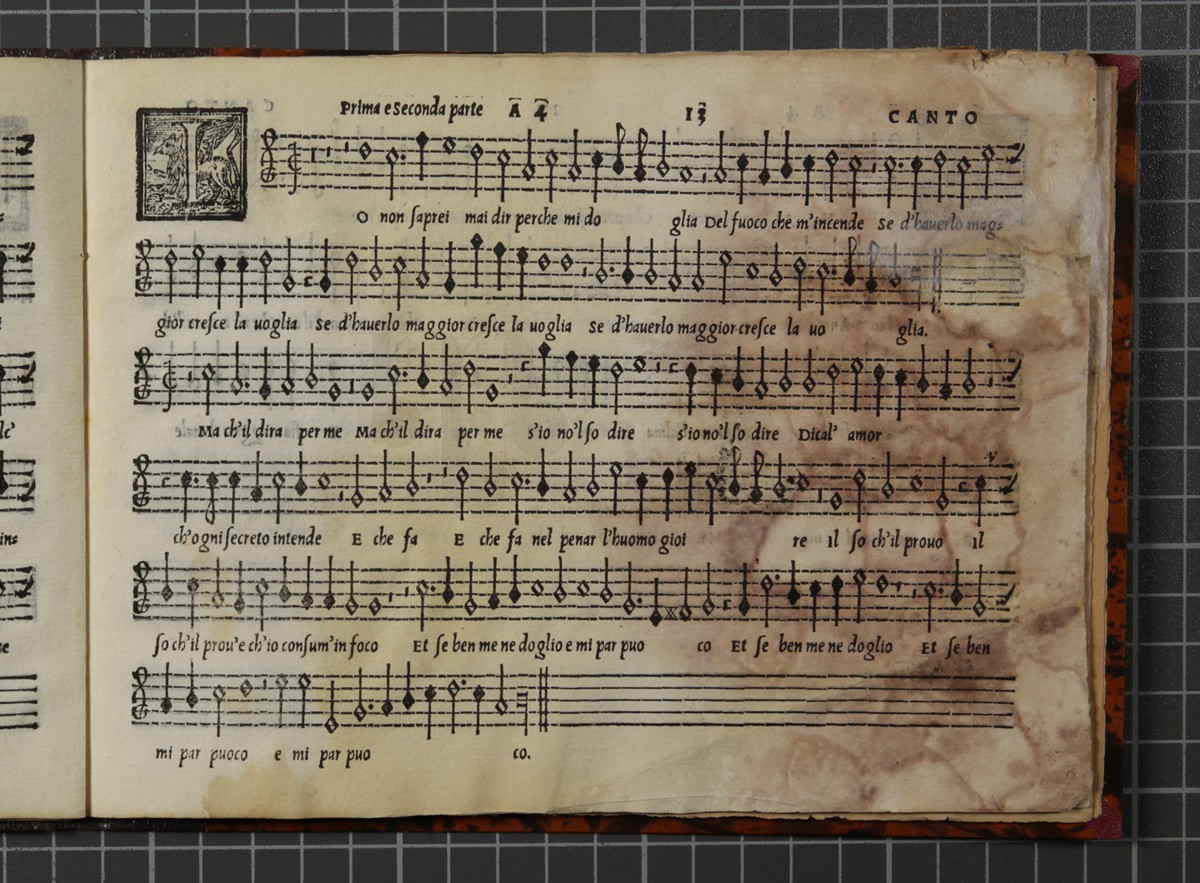 Prima e Seconda parte A 4 13 CANTO
I O non ſaprei mai dir perche mi do glia Del fuoco che m'incende Se d'hauerlo mag=
gior creſce la uoglia Se d'hauerlo maggior creſce la uoglia Se d'hauerlo maggior creſce la uo glia.
Ma ch'il dira per me Ma ch'il dira per me s'io no'l ſo dire s'io no'l ſo dire Dical' amor
ch'ogni ſecreto intende E che fa E che fa nel penar l'huomo gioi re Il ſo ch'il prouo Il
ſo ch'il prou'e ch'io conſum'in foco Et ſe ben me ne doglio e mi par puo co Et ſe ben me ne doglio Et ſe ben
mi par puoco e mi par puo co.